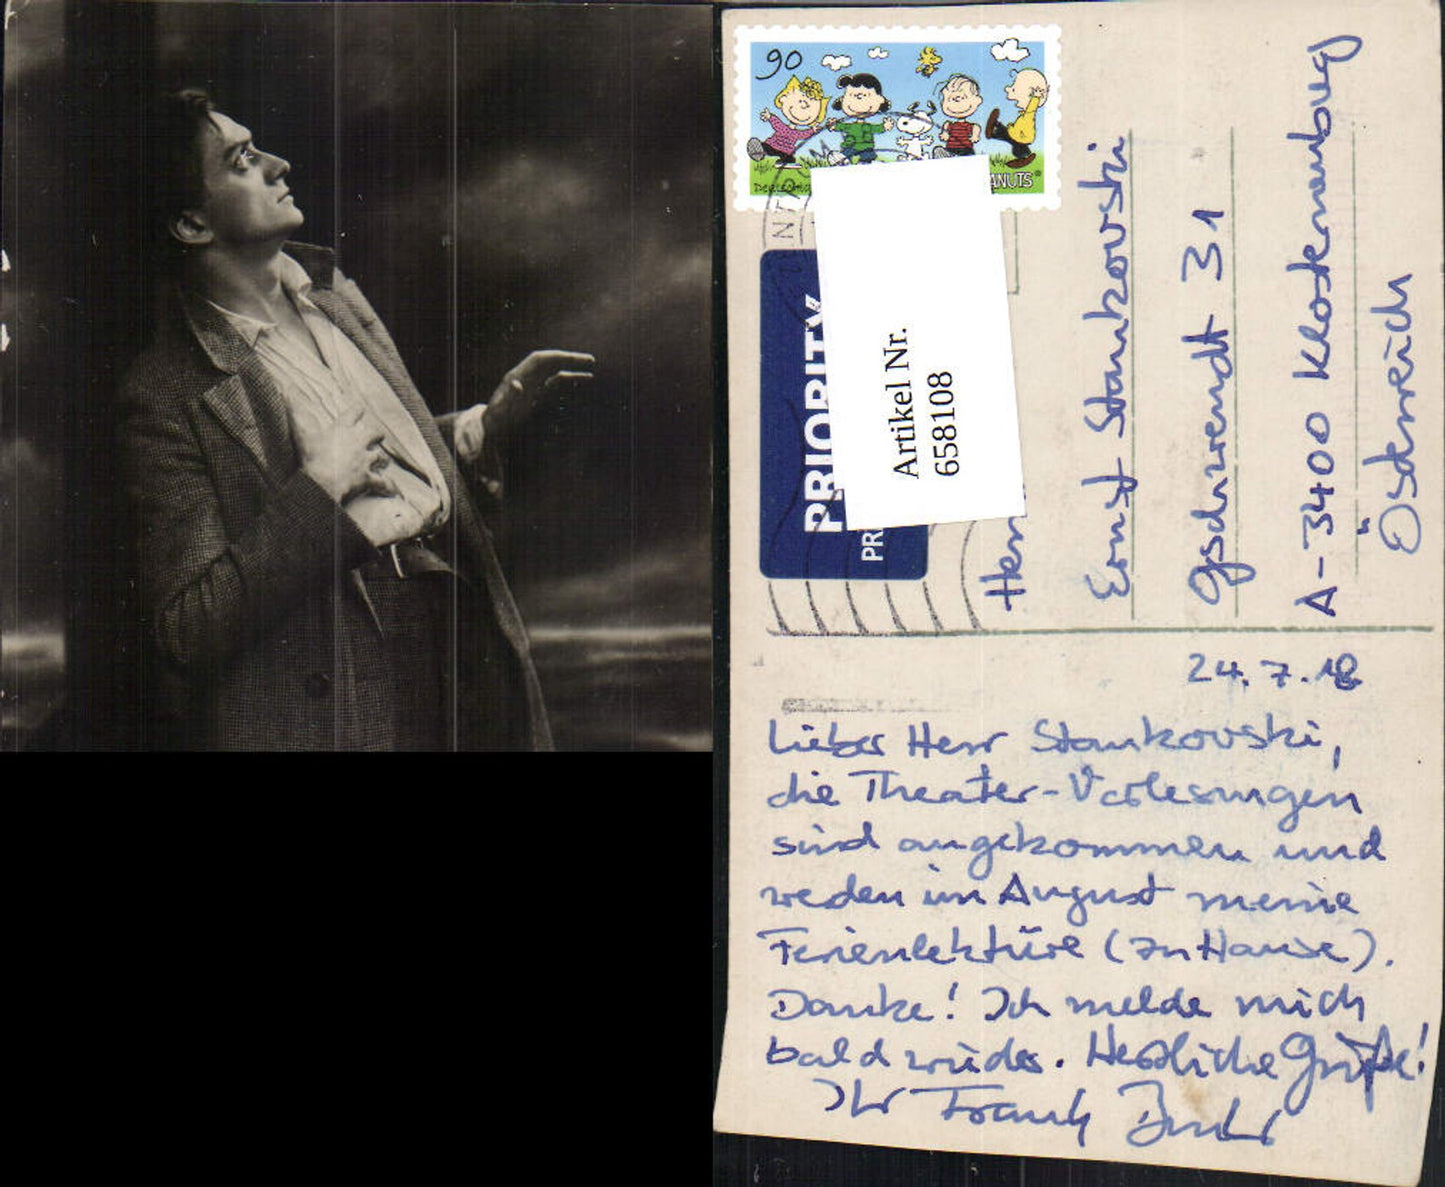 90
PEANUTS
PRIORITY
PR
Artikel Nr.
658108
Herrn
Ernst Stankovski
Gschwendt 31
A-3400 Klosterneuburg
Österreich
24.7.18
Lieber Herr Stankovski,
die Theater-Vorlesungen
sind angekommen und
werden im August meine
Ferienlektüre (zu Hause).
Danke! Ich melde mich
bald wieder. Herzliche Grüße!
Ihr Frank